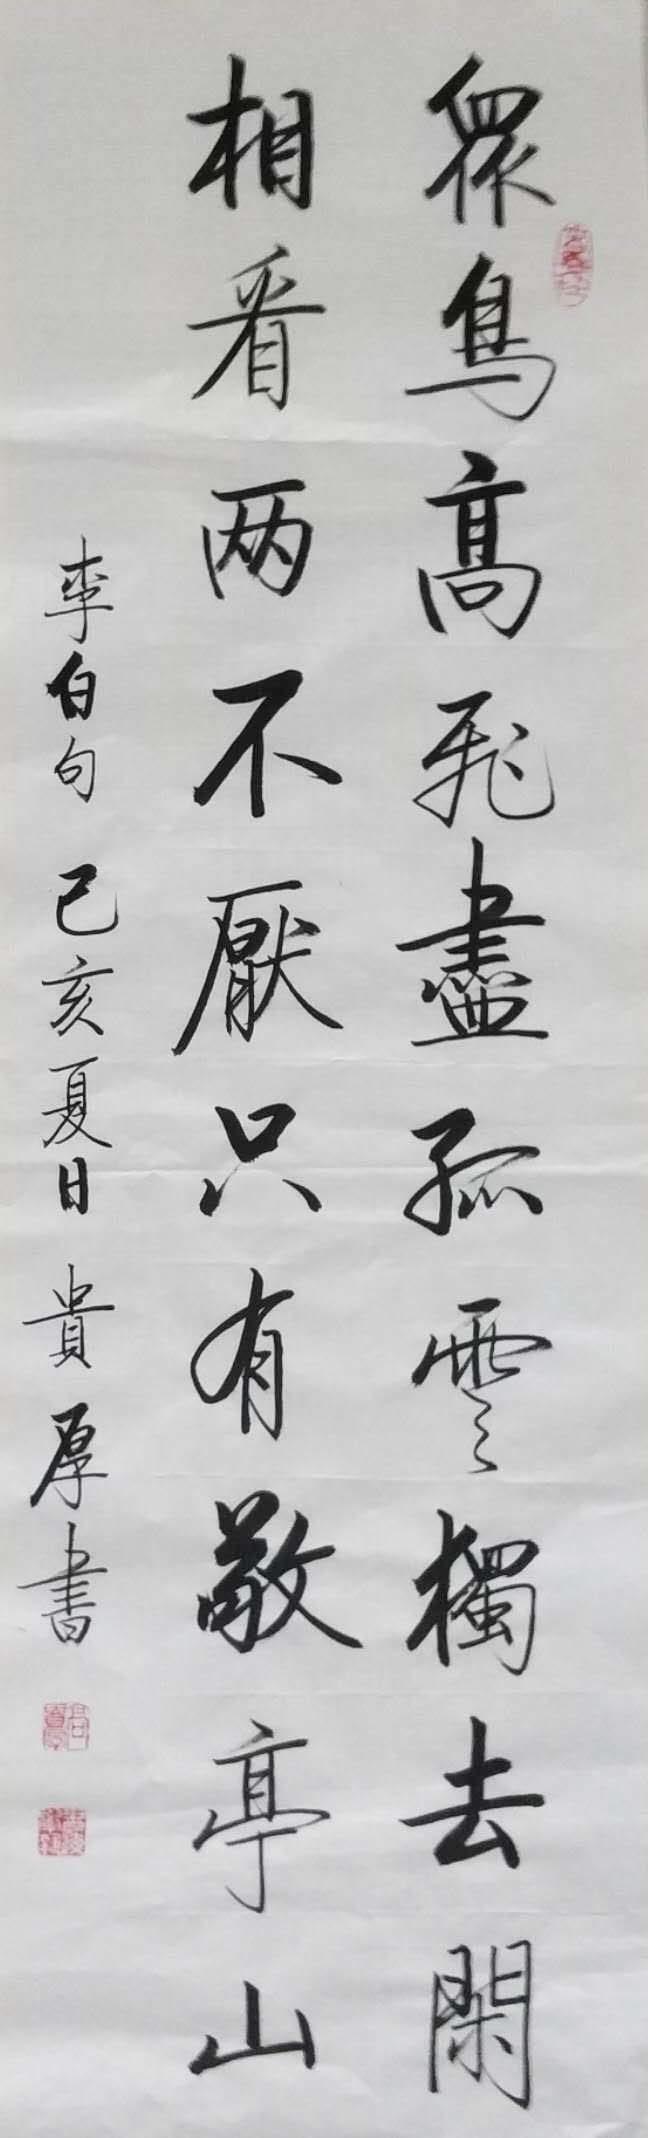 眾鳥高飛盡孤雲獨去閑
相看两不厭只有敬亭山
李白句 己亥夏日 貴厚書